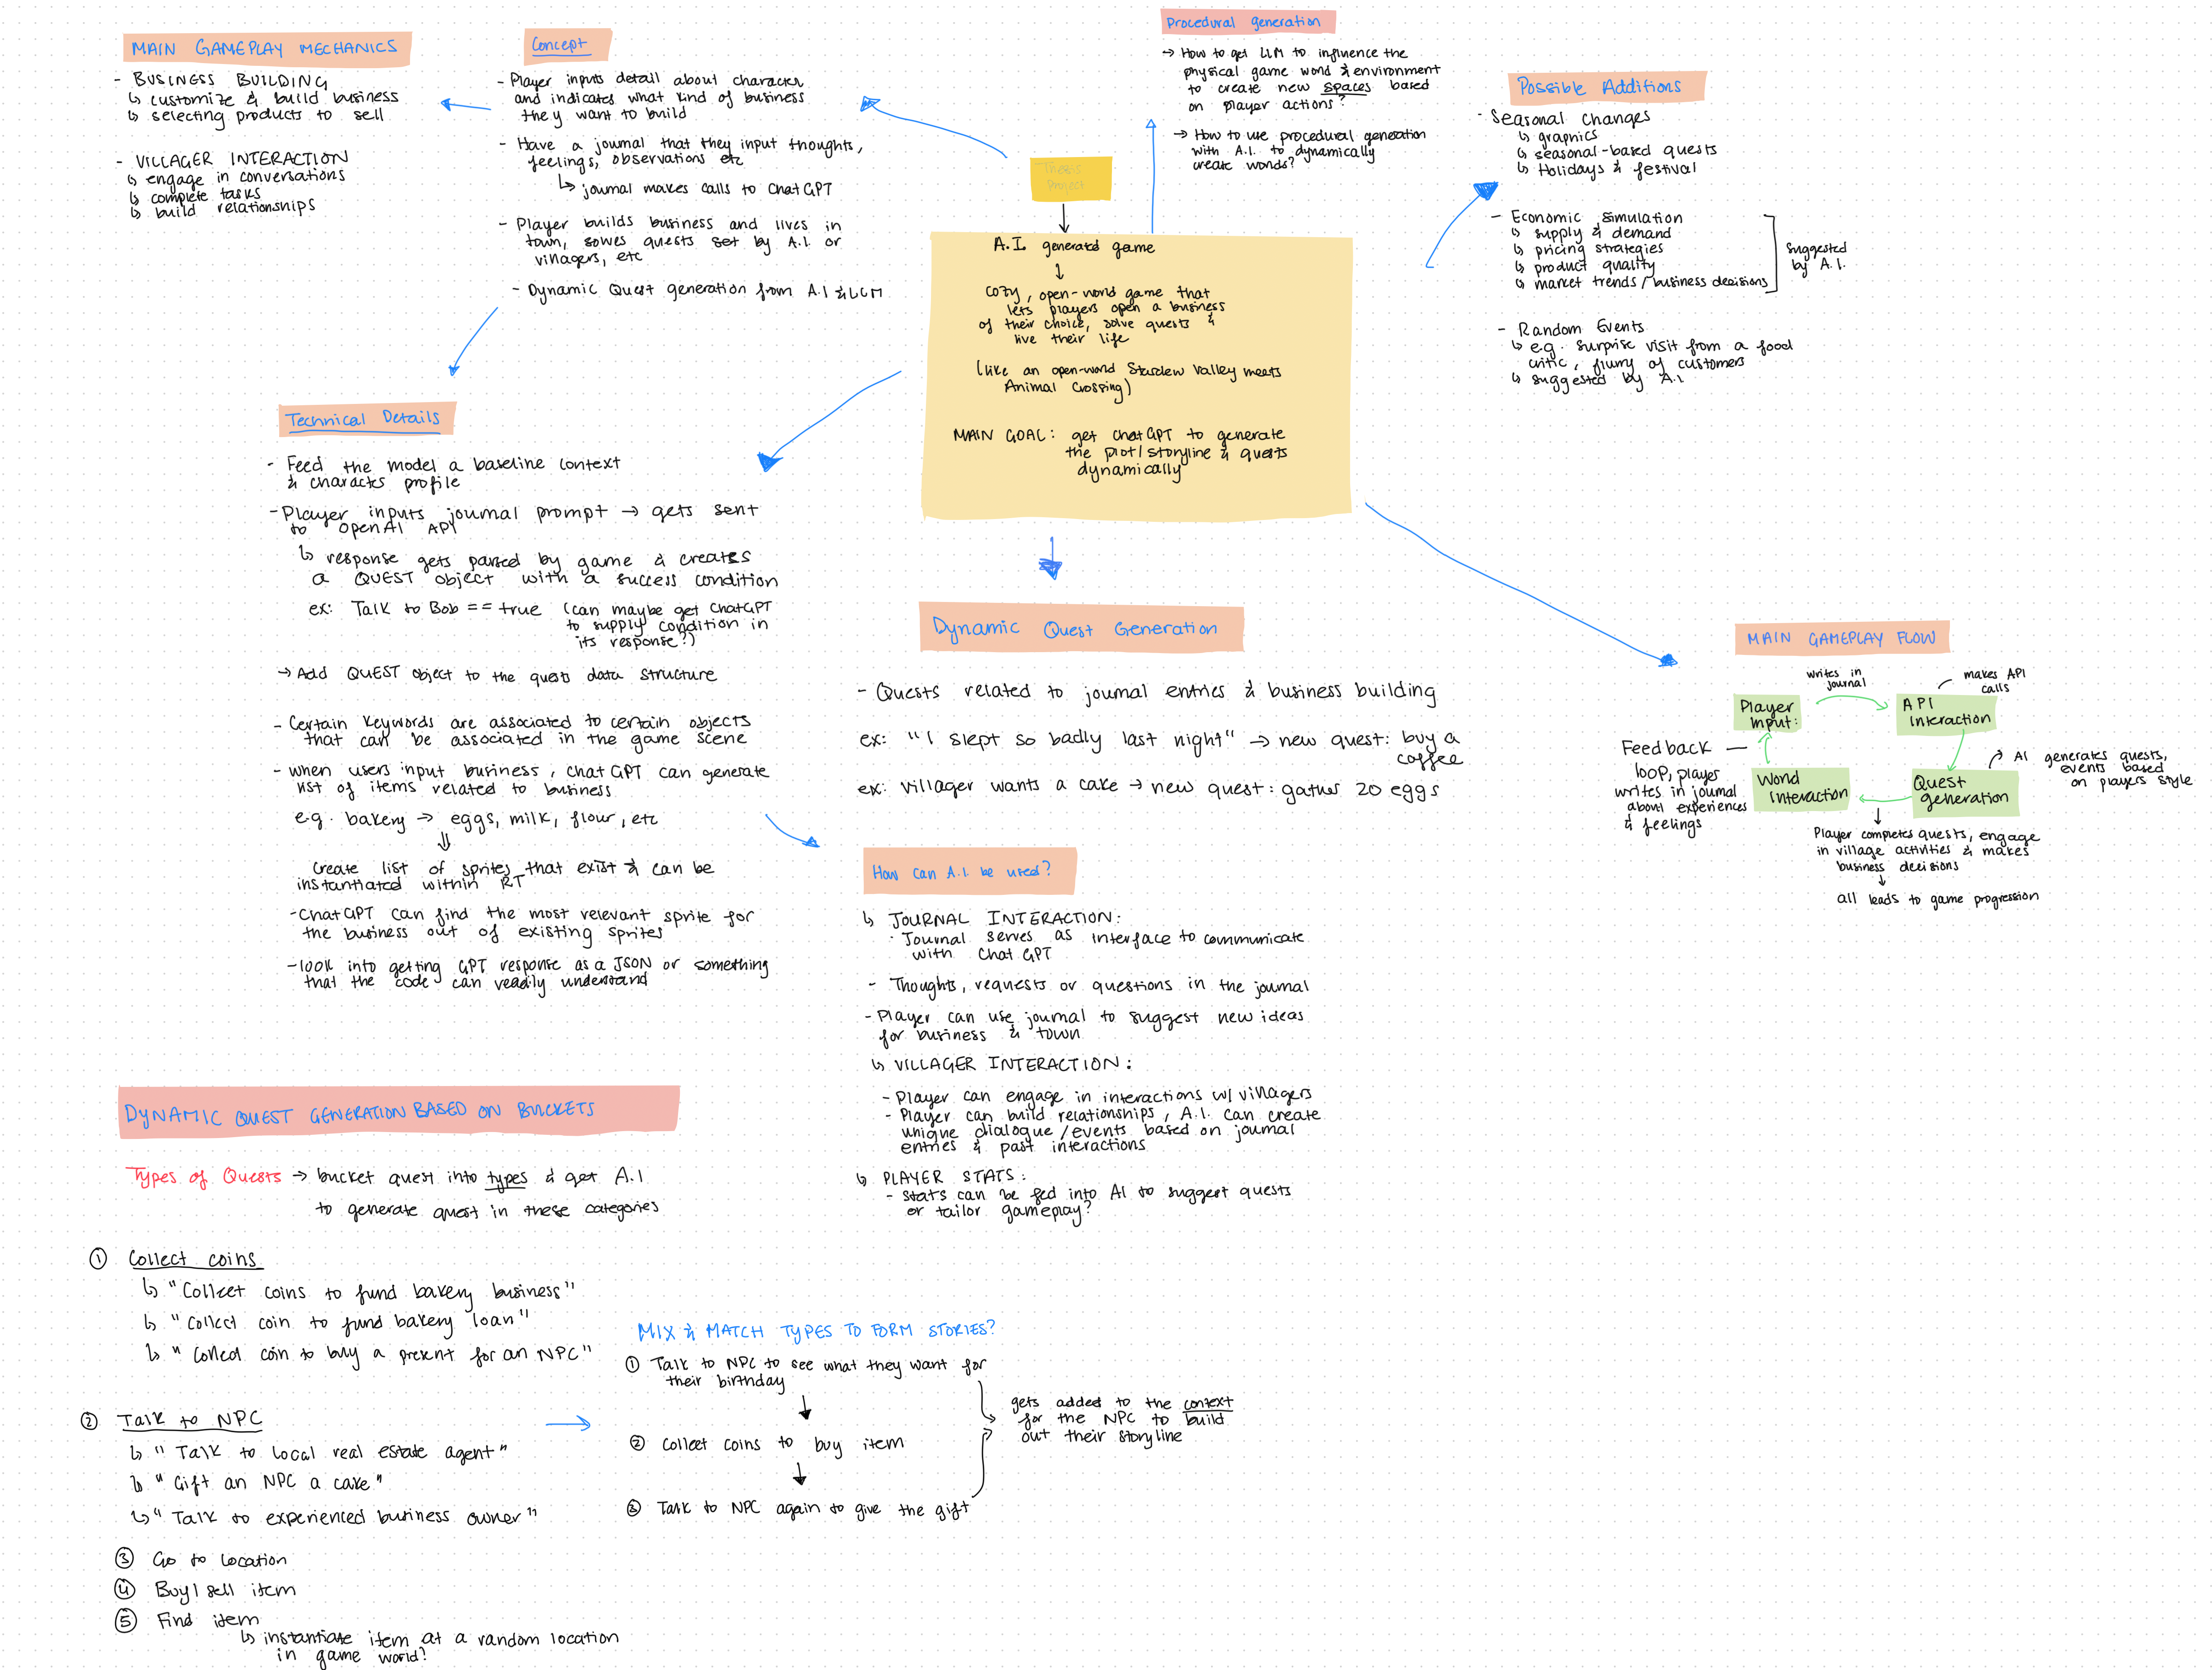 MAIN GAMEPLAY MECHANICS
- BUSINESS BUILDING
↳ customize & build business
↳ selecting products to sell
- VILLAGER INTERACTION
↳ engage in conversations
↳ complete tasks
↳ build relationships
Concept
- Player inputs detail about character
and indicates what kind of business
they want to build
- Have a journal that they input thoughts,
feelings, observations etc
↳ journal makes calls to ChatGPT
- Player builds business and lives in
town, solves quests set by A.I. or
villagers, etc
- Dynamic Quest generation from A.I & LLM
Procedural generation
→ How to get LLM to influence the
physical game world & environment
to create new spaces based
on player actions?
→ How to use procedural generation
with A.I. to dynamically
create worlds?
Possible Additions
- Seasonal Changes
↳ graphics
↳ seasonal-based quests
↳ Holidays & festival
- Economic simulation
↳ supply & demand
↳ pricing strategies
↳ product quality
↳ market trends/business decisions
suggested
by A.I.
- Random Events
↳ e.g. surprise visit from a food
critic, flurry of customers
↳ suggested by A.I
Thesis
Project
A.I. generated game
↓
cozy, open-world game that
lets players open a business
of their choice, solve quests &
live their life
(like an open-world Stardew Valley meets
Animal Crossing)
MAIN GOAL: get chatGPT to generate
the plot/storyline & quests
dynamically
Technical Details
- Feed the model a baseline context
& character profile
- Player inputs journal prompt → gets sent
to OpenAI API
↳ response gets parsed by game & creates
a QUEST object with a success condition
ex: Talk to Bob == true (can maybe get ChatGPT
to supply condition in
its response?)
→ Add QUEST object to the quests data structure
- Certain keywords are associated to certain objects
that can be associated in the game scene
- when users input business, chatGPT can generate
list of items related to business
e.g. bakery → eggs, milk, flour, etc
⇓
create list of sprites that exist & can be
instantiated within RT
- ChatGPT can find the most relevant sprite for
the business out of existing sprites
- look into getting GPT response as a JSON or something
that the code can readily understand
Dynamic Quest Generation
- Quests related to journal entries & business building
ex: "I slept so badly last night" → new quest: buy a
coffee
ex: villager wants a cake → new quest: gather 20 eggs
How can A.I. be used?
↳ JOURNAL INTERACTION:
· Journal serves as interface to communicate
with Chat GPT
- Thoughts, requests or questions in the journal
- Player can use journal to suggest new ideas
for business & town
↳ VILLAGER INTERACTION:
- Player can engage in interactions w/ villagers
- Player can build relationships, A.I. can create
unique dialogue/events based on journal
entries & past interactions
↳ PLAYER STATS:
- stats can be fed into AI to suggest quests
or tailor gameplay?
MAIN GAMEPLAY FLOW
writes in
journal
makes API
calls
Player
Input:
API
Interaction
Feedback
loop, player
writes in journal
about experiences
& feelings
World
Interaction
Quest
generation
AI generates quests,
events based
on players style
Player completes quests, engage
in village activities & makes
business decisions
↓
all leads to game progression
DYNAMIC QUEST GENERATION BASED ON BUCKETS
Types of Quests → bucket quest into types & get A.I
to generate quest in these categories
① Collect coins
↳ "Collect coins to fund bakery business"
↳ "Collect coin to fund bakery loan"
↳ "Collect coin to buy a present for an NPC"
② Talk to NPC
↳ "Talk to local real estate agent"
↳ "Gift an NPC a cake"
↳ "Talk to experienced business owner"
③ Go to location
④ Buy/sell item
⑤ Find item
↳ instantiate item at a random location
in game world?
MIX & MATCH TYPES TO FORM STORIES?
① Talk to NPC to see what they want for
their birthday
↓
② Collect coins to buy item
↓
③ Talk to NPC again to give the gift
gets added to the context
for the NPC to build
out their storyline